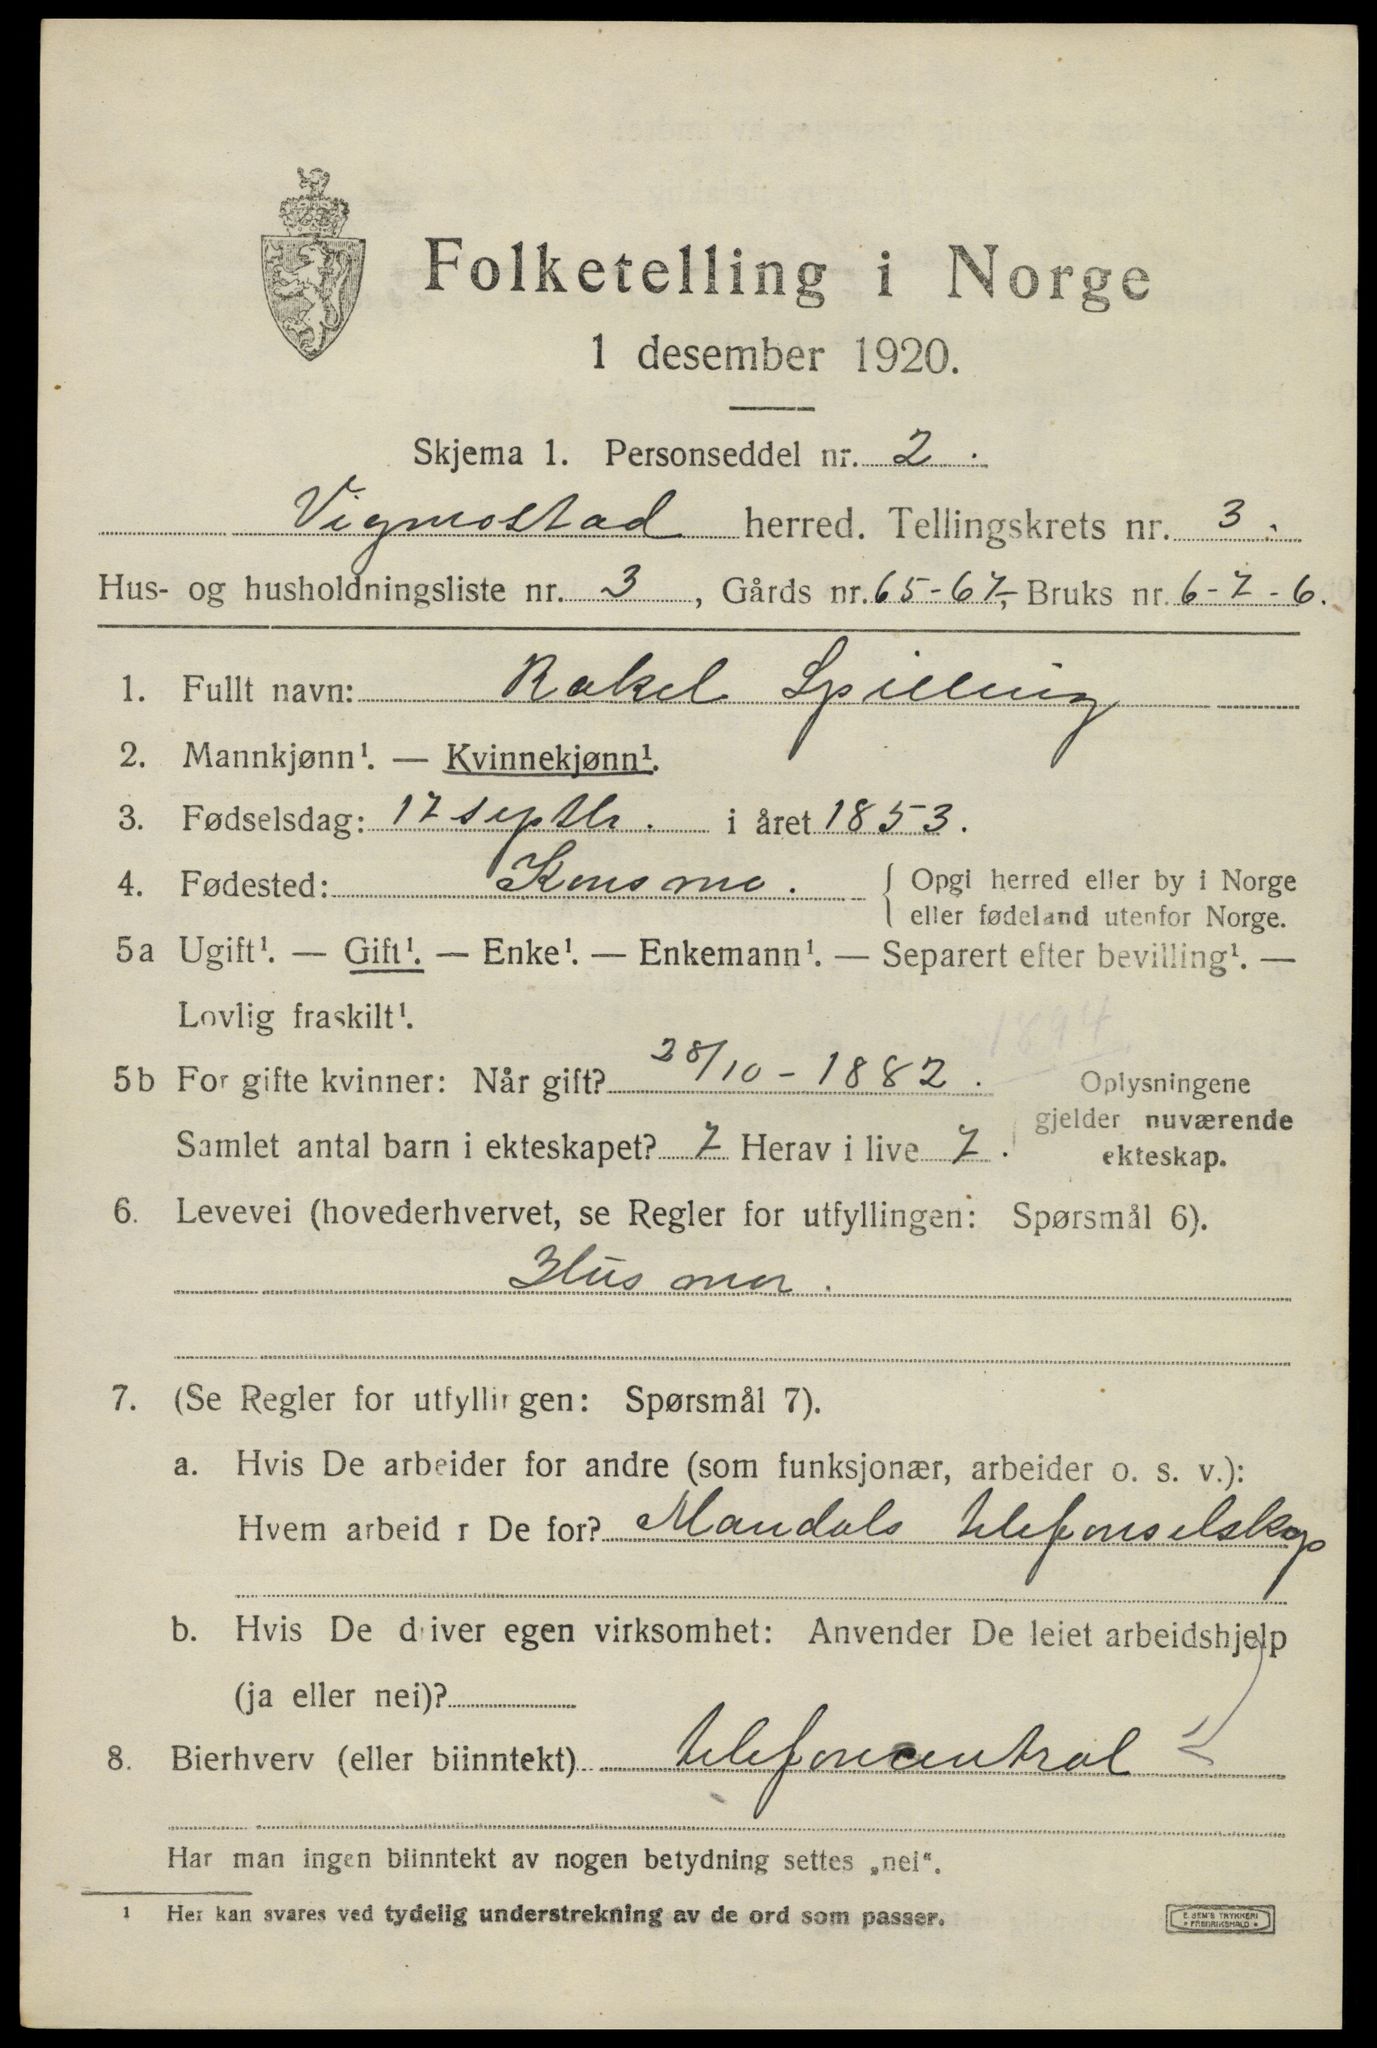 Folketelling i Norge
1 desember 1920.
Skjema 1. Personseddel nr. 2.
Vigmostad herred. Tellingskrets nr. 3.
Hus- og husholdningsliste nr. 3, Gårds nr. 65-67, Bruks nr. 6-7-6.
1. Fullt navn: Rakel Spilling
2. Mannkjønn¹. — Kvinnekjønn¹.
3. Fødselsdag: 17 septbr. i året 1853.
4. Fødested: Konsmo. { Opgi herred eller by i Norge
eller fødeland utenfor Norge.
5a Ugift¹. — Gift¹. — Enke¹. — Enkemann¹. — Separert efter bevilling¹. —
Lovlig fraskilt¹.
1894
5b For gifte kvinner: Når gift? 28/10 - 1882. Oplysningene
gjelder nuværende
Samlet antal barn i ekteskapet? 7 Herav i live 7.
ekteskap.
6. Levevei (hovederhvervet, se Regler for utfyllingen: Spørsmål 6).
Husmor.
7. (Se Regler for utfyllingen: Spørsmål 7).
a. Hvis De arbeider for andre (som funksjonær, arbeider o. s. v.):
Hvem arbeid r De for? Mandals telefonselskap
b. Hvis De driver egen virksomhet: Anvender De leiet arbeidshjelp
(ja eller nei)?
8. Bierhverv (eller biinntekt) telefoncentral
Har man ingen biinntekt av nogen betydning settes „nei“.
¹ Her kan svares ved tydelig understrekning av de ord som passer.
E. SEM'S TRYKKERI
FREDRIKSHALD